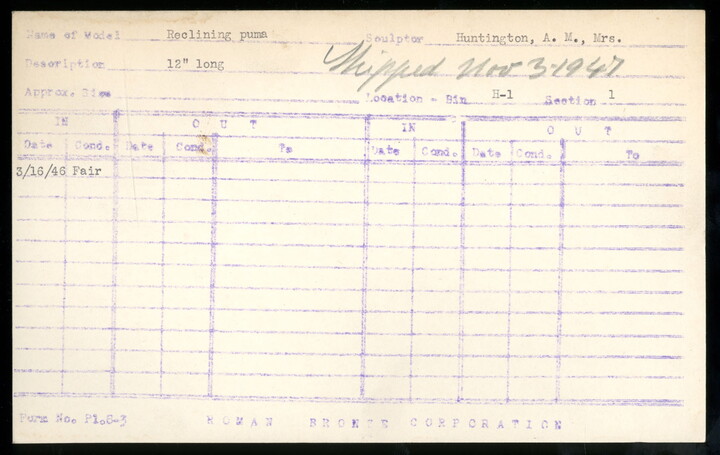 Name of Model Reclining puma Sculptor Huntington, A. M., Mrs.
Description 12" long Shipped Nov 3-1947
Approx. Size Location - Bin H-1 Section 1
IN O U T IN O U T
Date Cond. Date Cond. To Date Cond. Date Cond. To
3/16/46 Fair
Form No. P1.S-3 ROMAN BRONZE CORPORATION